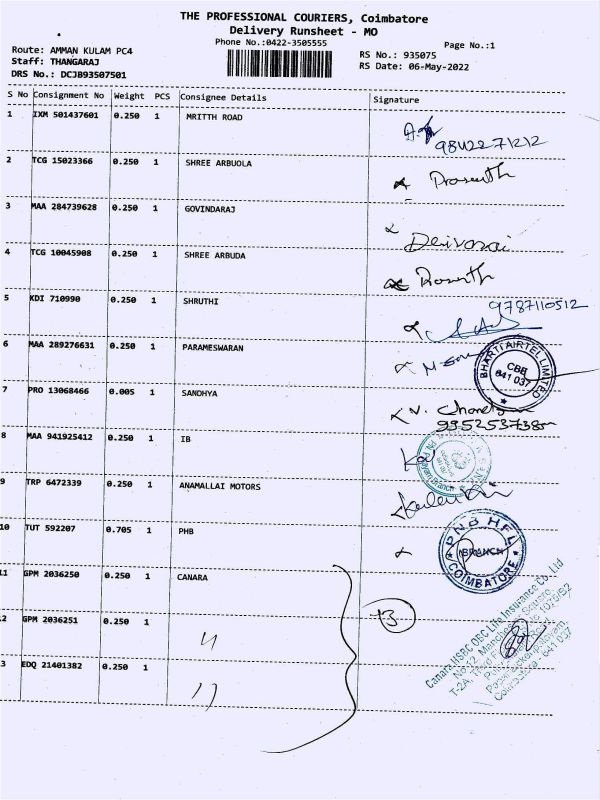 THE PROFESSIONAL COURIERS, Coimbatore
Delivery Runsheet - MO
Phone No.:0422-3505555
Page No.:1
Route: AMMAN KULAM PC4
Staff: THANGARAJ
DRS No.: DCJB93507501
RS No.: 935075
RS Date: 06-May-2022
S No Consignment No Weight PCS Consignee Details Signature
1 IXM 501437601 0.250 1 MRITTH ROAD
9842271212
2 TCG 15023366 0.250 1 SHREE ARBUOLA Prasanth
3 MAA 284739628 0.250 1 GOVINDARAJ
4 TCG 10045908 0.250 1 SHREE ARBUDA Prasanth
5 KDI 710990 0.250 1 SHRUTHI 9787110512
6 MAA 289276631 0.250 1 PARAMESWARAN
BHARTI AIRTEL LIMITED
CBE
641 037
7 PRO 13068466 0.005 1 SANDHYA
8 MAA 941925412 0.250 1 IB
9 TRP 6472339 0.250 1 ANAMALLAI MOTORS
10 TUT 592207 0.705 1 PHB
PNB HFL
BRANCH
COIMBATORE
11 GPM 2036250 0.250 1 CANARA
2 GPM 2036251 0.250 1 "
13
3 EDQ 21401382 0.250 1 "
Canara HSBC OBC Life Insurance Co. Ltd
Coimbatore - 641 037